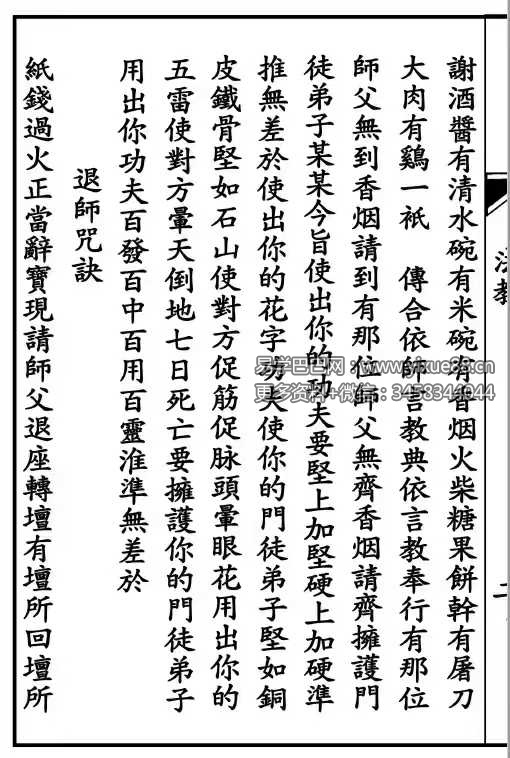 謝酒醬有清水碗有米碗有香烟火柴糖果餅幹有屠刀
大肉有鷄一衹　傳合依師言教典依言教奉行有那位
師父無到香烟請到有那位師父無齊香烟請齊擁護門
徒弟子某某今旨使出你的功夫要堅上加堅硬上加硬準
推無差於使出你的花字功夫使你的門徒弟子堅如銅
皮鐵骨堅如石山使對方促筋促脉頭暈眼花用出你的
五雷使對方暈天倒地七日死亡要擁護你的門徒弟子
用出你功夫百發百中百用百靈淮準無差於
退師咒訣
紙錢過火正當辭寶現請師父退座轉壇有壇所回壇所
易学巴巴网：www.yixue88.cn
更多资料+微信：3458344044